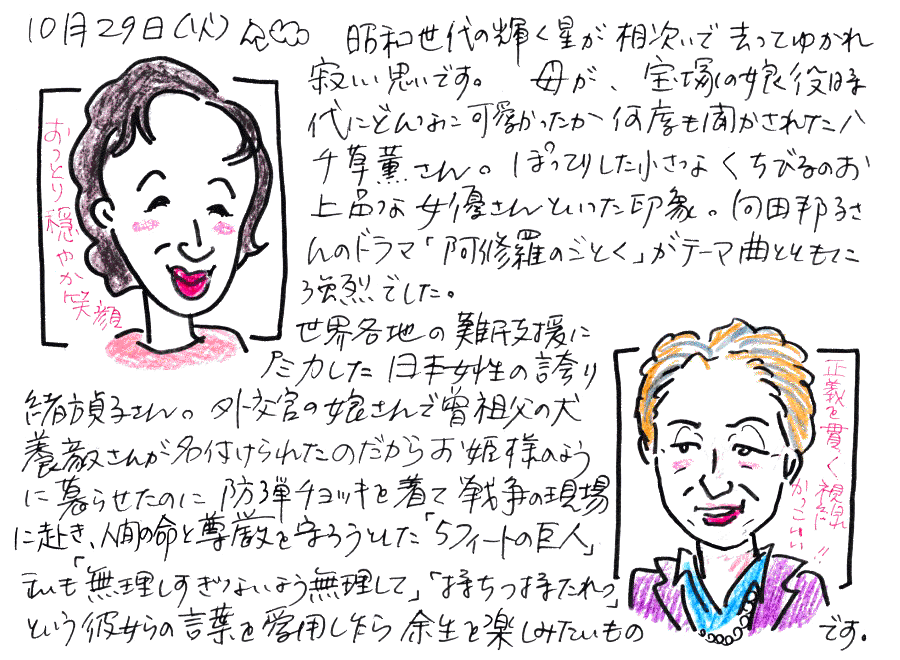 10月29日(火)
昭和世代の輝く星が相次いで去ってゆかれ
寂しい思いです。 母が、宝塚の娘役時
代にどんなに可愛かったか何度も聞かされた八
千草薫さん。ぽってりした小さなくちびるのお
上品な女優さんといった印象。向田邦子さ
んのドラマ「阿修羅のごとく」がテーマ曲とともに
強烈でした。
おっとり穏やか笑顔
世界各地の難民支援に
尽力した日本女性の誇り
緒方貞子さん。外交官の娘さんで曽祖父の犬
養毅さんが名付けられたのだからお姫様のよう
に暮らせたのに防弾チョッキを着て戦争の現場
に赴き、人間の命と尊厳を守ろうとした「5フィートの巨人」
私も「無理しすぎないよう無理して」「持ちつ持たれつ」
という彼女らの言葉を愛用しながら余生を楽しみたいものです。
正義を貫く視線
かっこいい!!